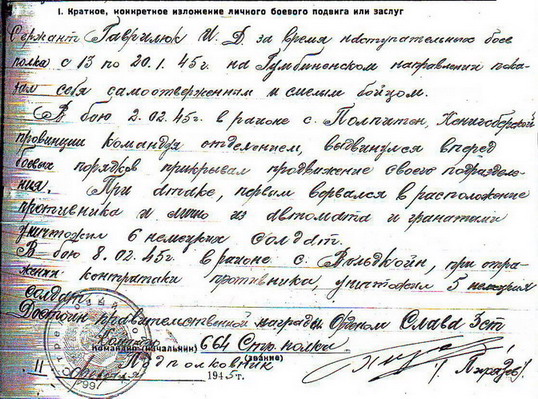 I. Краткое, конкретное изложение личного боевого подвига или заслуг
Сержант Гаврилюк И. Д. за время наступательных боев
полка с 13 по 20.1.45г. на Гумбиненском направлении пока-
зал себя самоотверженным и смелым бойцом.
В бою 2.02.45г. в районе с. Полпитен, Кенигсбергской
провинции командуя отделением, выдвинулся вперед
боевых порядков прикрывал продвижение своего подразделе-
ния. При атаке, первым ворвался в расположение
противника и лично из автомата и гранатами
уничтожил 6 немецких солдат.
В бою 8.02.45г. в районе с. Вольдкойн, при отра-
жении контратаки противника, уничтожил 5 немецких
солдат
Достоин правительственной награды Орденом Слава 3ст
Командир 664 Стр. полка
командир (начальник) (звание)
Подполковник
11 февраля 1945 г.